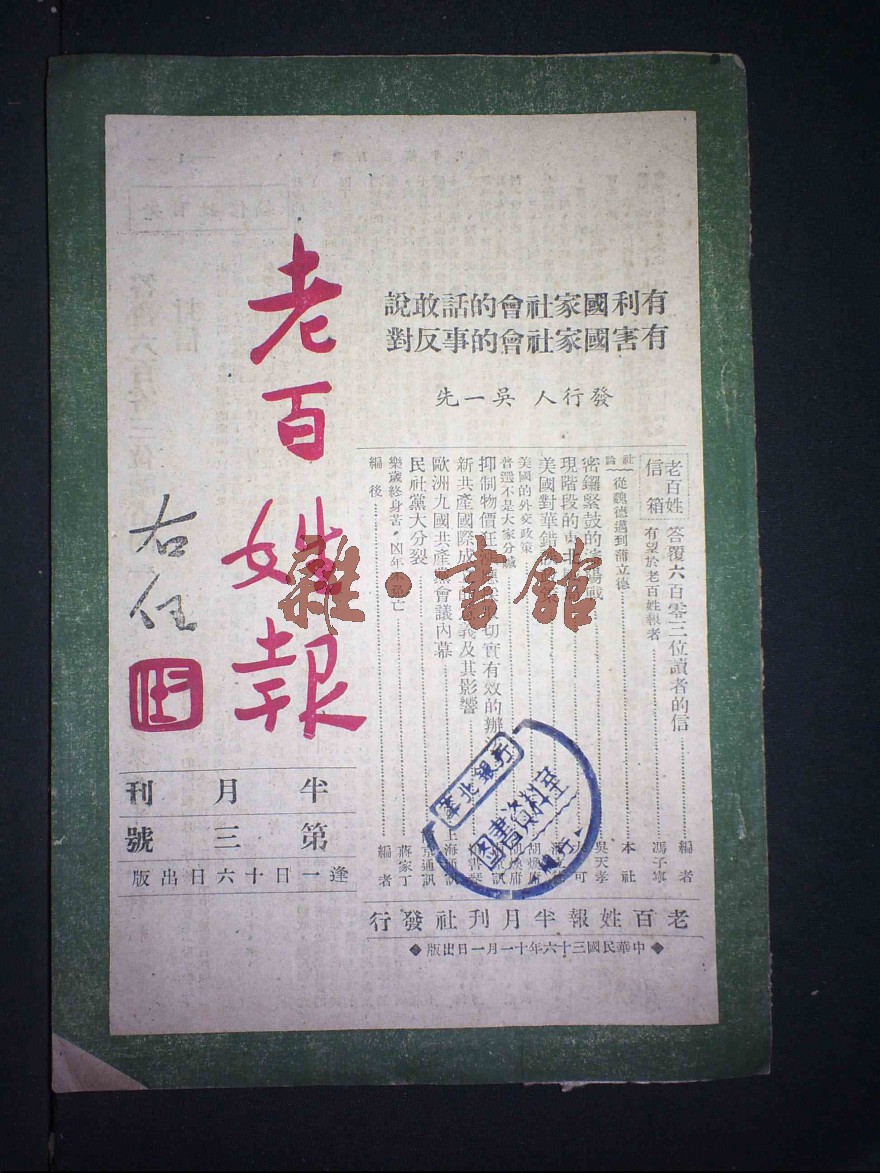 有利國家社會的話敢說
有害國家社會的事反對
發行人 吳一先
老百姓報
右任
老百姓
信箱
答覆六百零三位讀者的信 編者
有望於老百姓報者 馮子寧
社論
從魏德邁到蒲立德 本社
密鑼緊鼓的 戰 吳天孝
現階段的東北 可
美國對華錯
美國的外交政策 胡煥庸
普選不是大家分贓
抑制物價 切實有效的辦
新共產國際成 義及其影響
歐洲九國共產黨會議內幕 上海通訊
民社黨大分裂 南京通訊
樂歲終身苦,凶年不免亡 蔣家丁
編後 編者
半月刊
第三號
逢一日十六日出版
老百姓報半月刊社發行
◆中華民國三十六年十一月一日出版◆
華北銀行
圖書資料室
雜·書館